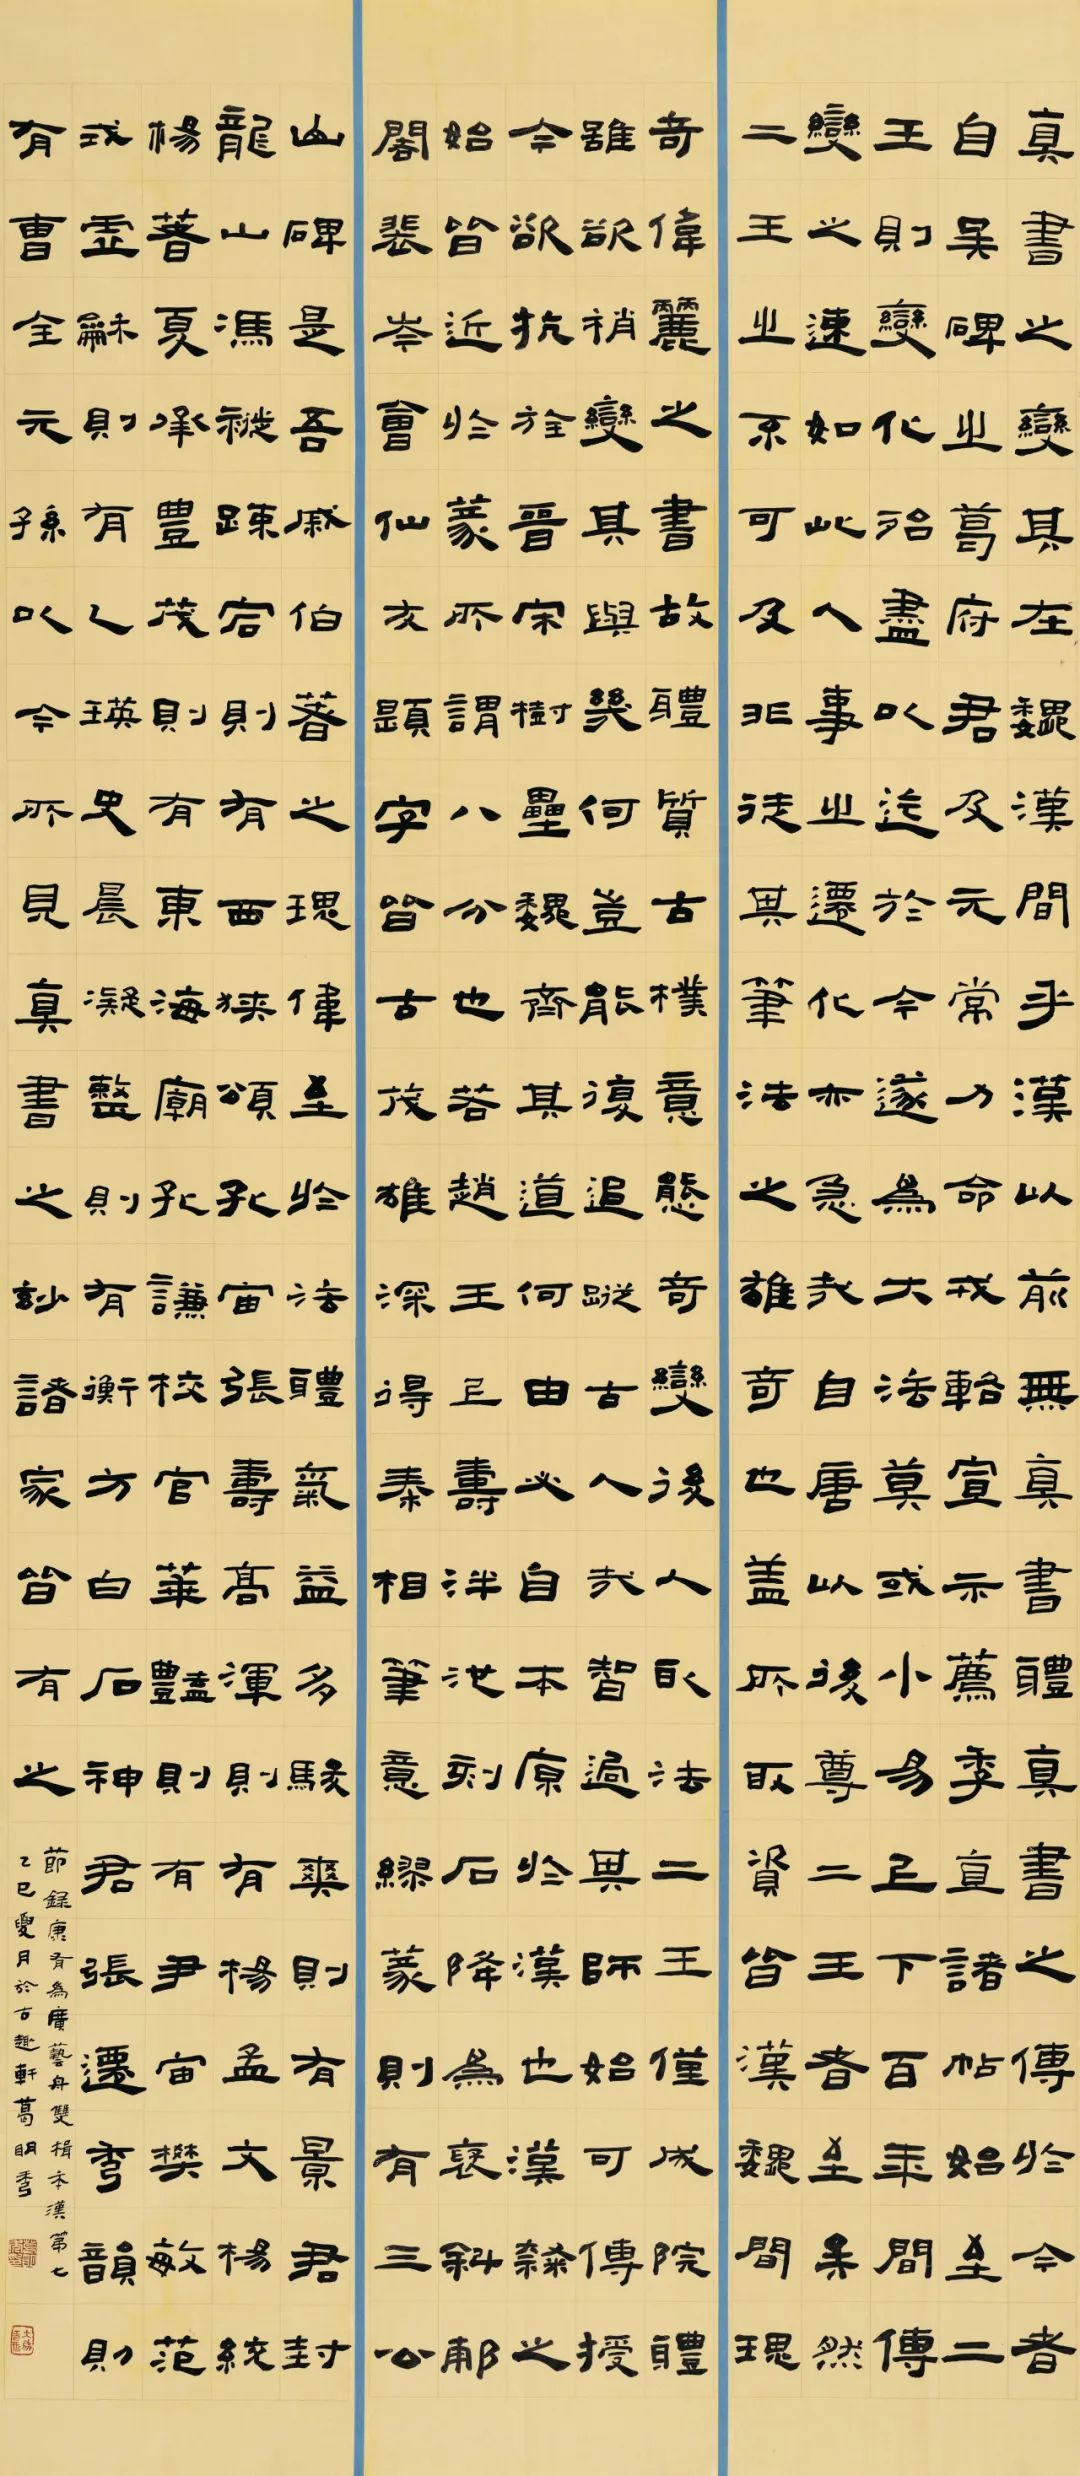 真書之變其在魏漢間乎漢以前無真書體真書之傳於今者
自吳碑之葛府君及元常力命戎輅宣示薦季直諸帖始至二
王則變化殆盡以迄於今遂為大法莫或小易上下百年間傳
變之速如此人事之遷化亦急哉自唐以後尊二王者至矣然
二王之不可及非徒其筆法之雄奇也蓋所取資皆漢魏間瑰
奇偉麗之書故體質古樸意態奇變後人取法二王僅成院體
雖欲稍變其與幾何豈能復追蹤古人哉智過其師始可傳授
今欲抗於晉宋樹壘魏齊其道何由必自本原於漢也漢隸之
始皆近於篆所謂八分也若趙王上壽泮池刻石降為褒斜郙
閣裴岑會仙友題字皆古茂雄深得秦相筆意繆篆則有三公
山碑是吾戚伯蓍之瑰偉至於法體氣益多駿爽則有景君封
龍山馮緄疎宕則有西狹頌孔宙張壽高渾則有楊孟文楊統
楊著夏承豐茂則有東海廟孔謙校官華艷則有尹宙樊敏范
式虛龢則有乙瑛史晨凝整則有衡方白石神君張遷秀韻則
有曹全元孫以今所見真書之妙諸家皆有之
節錄康有為廣藝舟雙楫本漢第七
乙巳夏月於古趣軒葛明秀